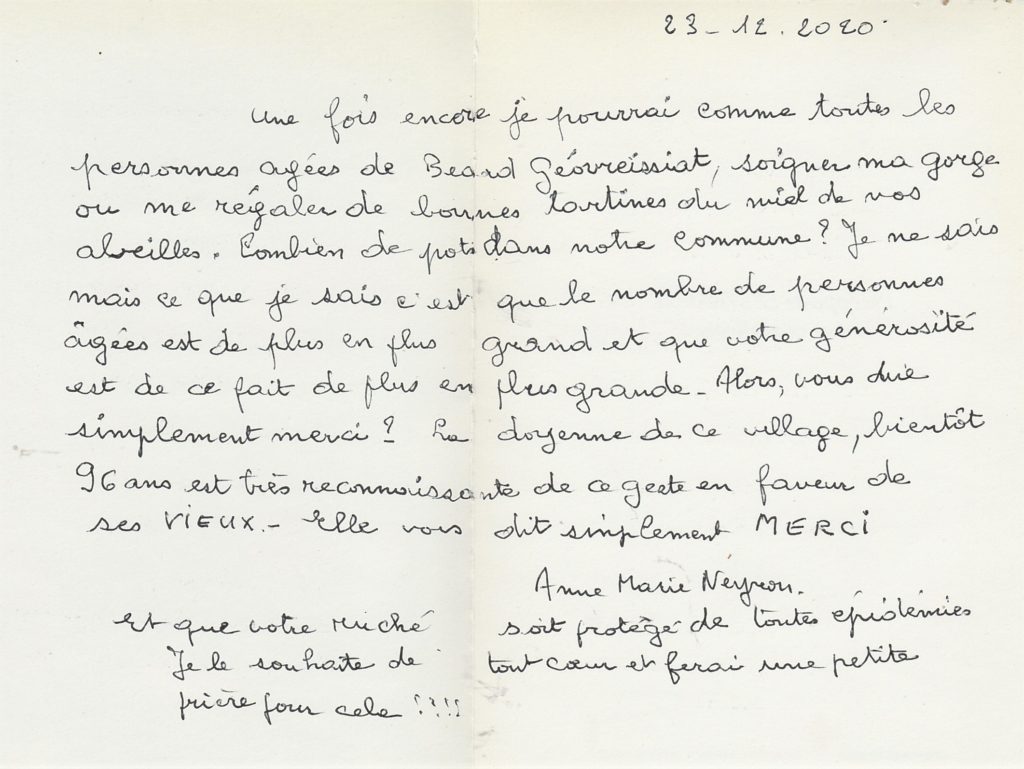 23-12.2020.
Une fois encore je pourrai comme toutes les
personnes agées de Beard Géovreissiat, soigner ma gorge
ou me régaler de bonnes tartines du miel de vos
abeilles. Combien de pots dans notre commune ? Je ne sais
mais ce que je sais c'est que le nombre de personnes
âgées est de plus en plus grand et que votre générosité
est de ce fait de plus en plus grande - Alors, vous dire
simplement merci ? La doyenne de ce village, bientôt
96 ans est très reconnaissante de ce geste en faveur de
ses VIEUX.- Elle vous dit simplement MERCI
Anne Marie Neyron.
Et que votre ruché soit protégé de toutes épidémies
Je le souhaite de tout cœur et ferai une petite
prière pour cela !?!!